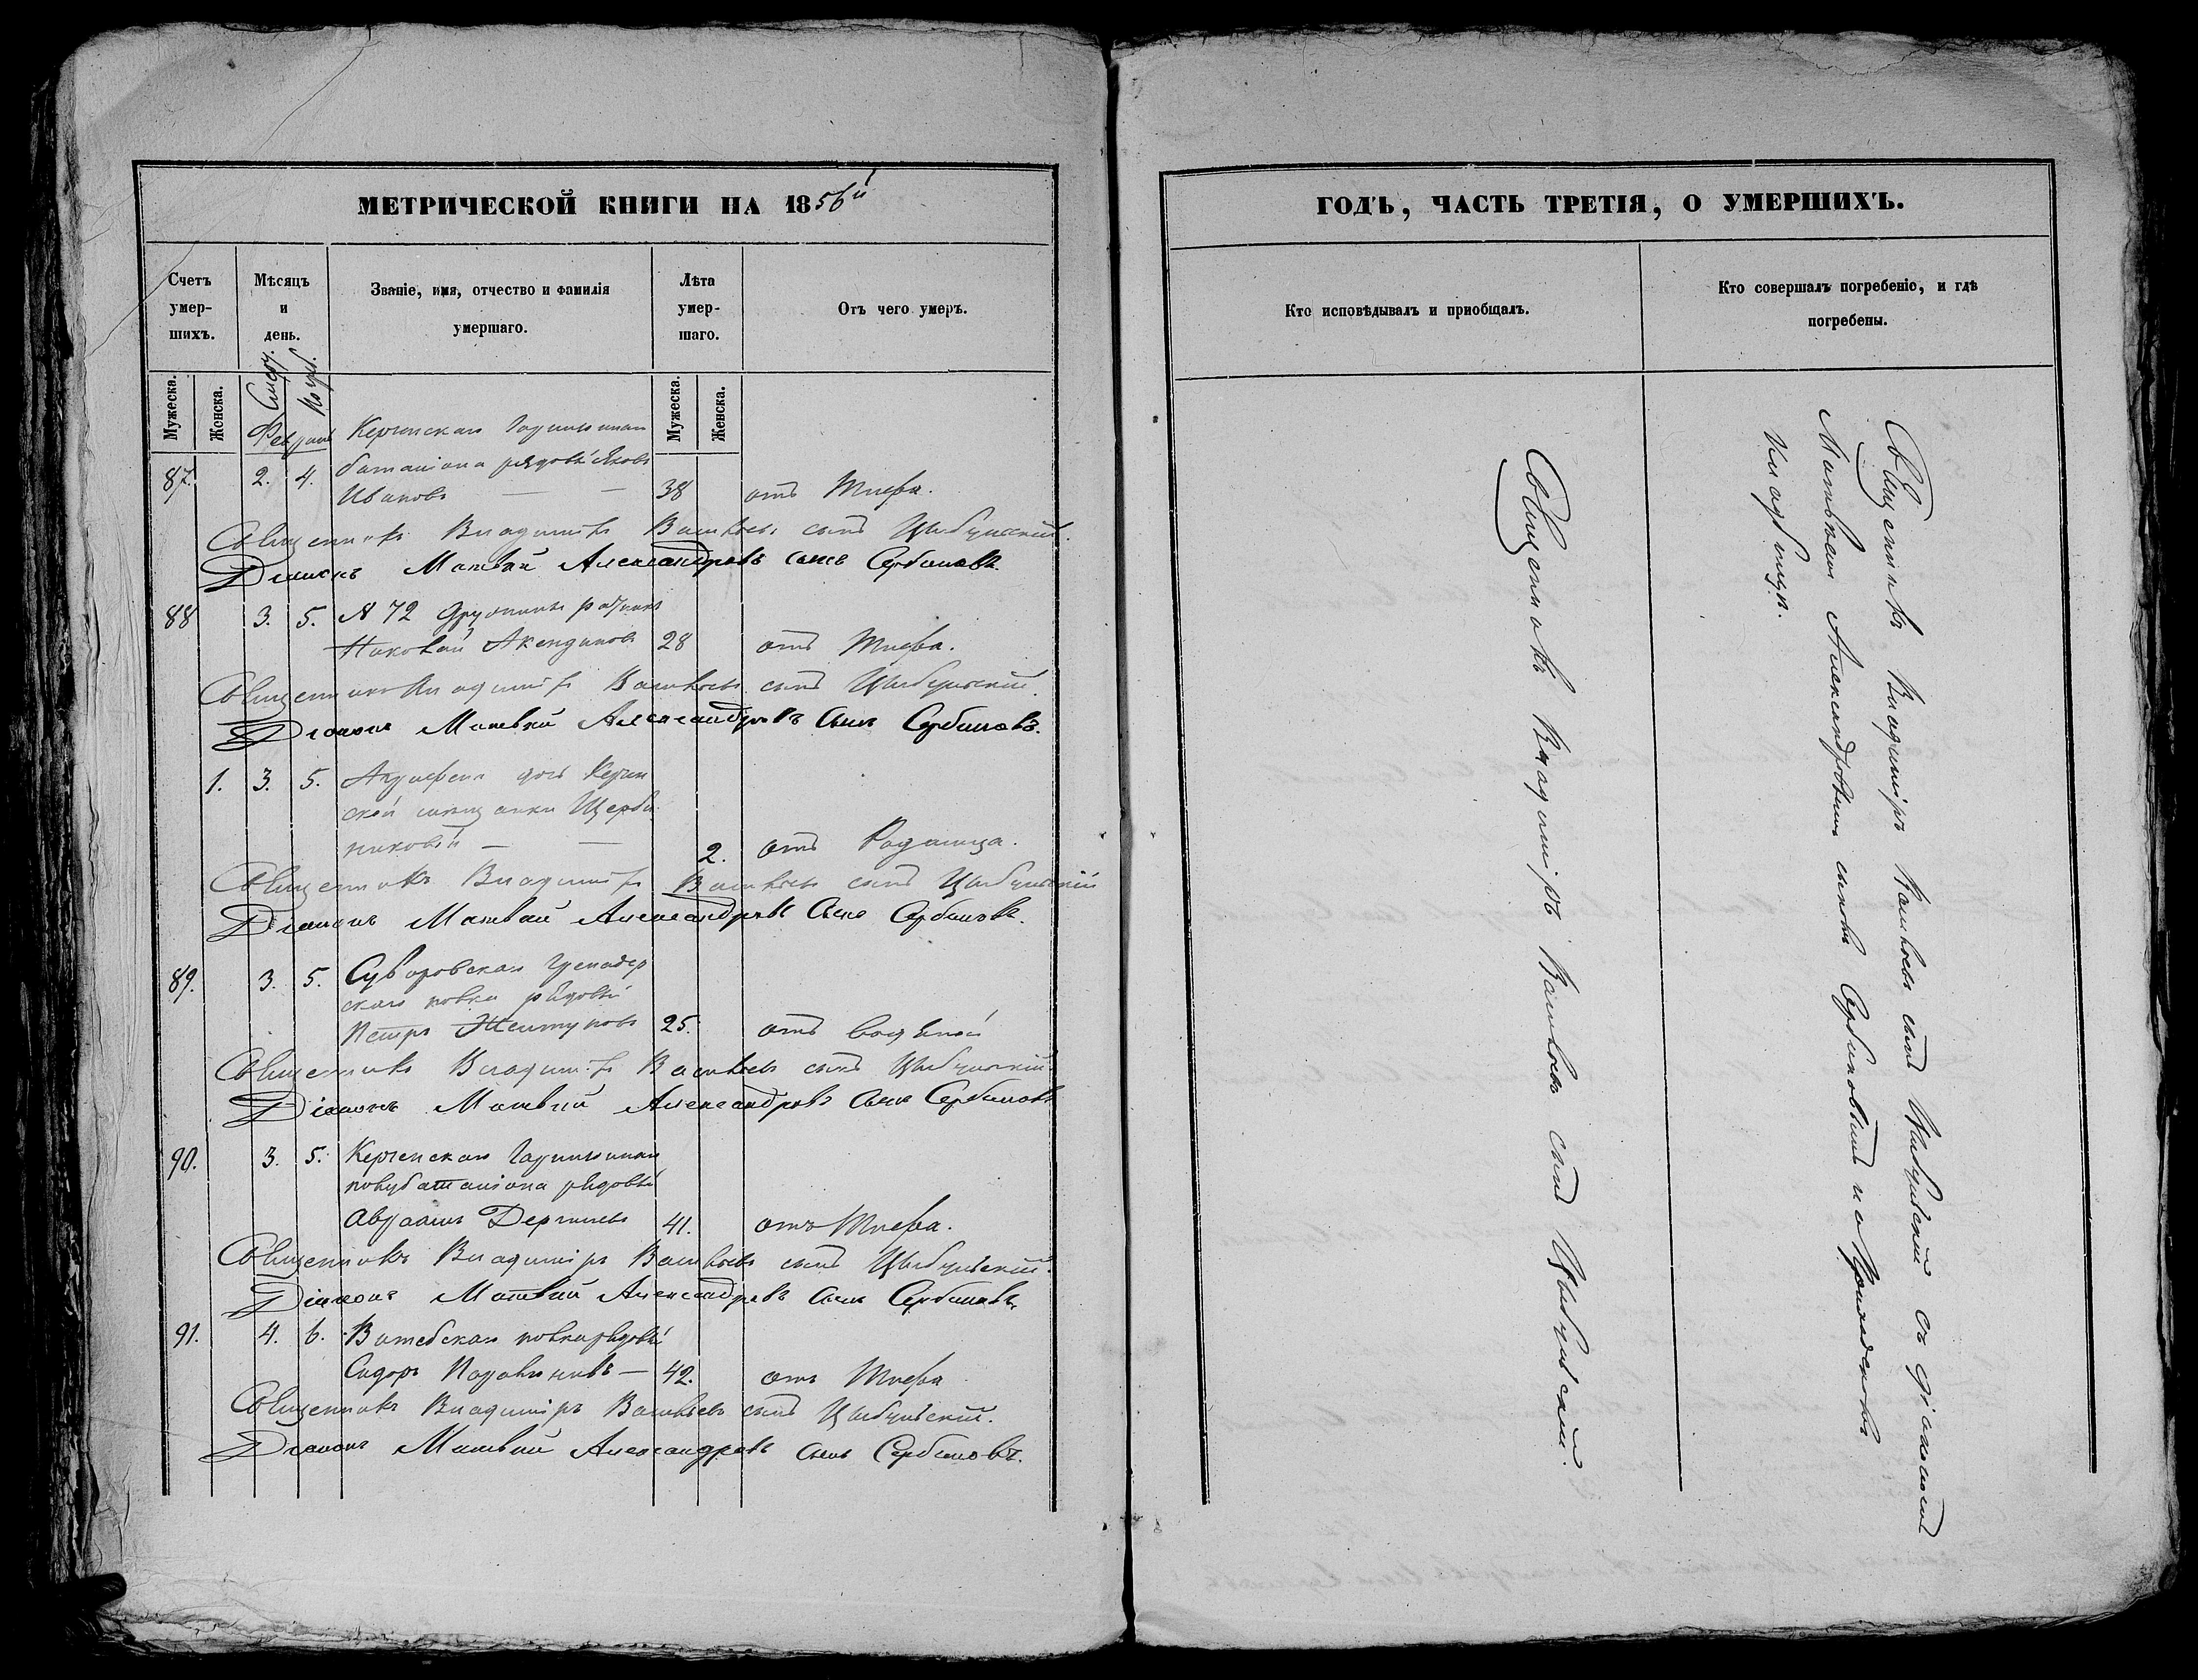 МЕТРИЧЕСКОЙ КНИГИ НА 1856й
Счетъ умер-шихъ.
Мѣсяцъ и день.
Званіе, имя, отчество и фамилія умершаго.
Лѣта умер-шаго.
Отъ чего умеръ.
Мужеска.
Женска.
Смерт.
Погреб.
Мужеска.
Женска.
Февраль
Керченскаго Гарнизоннаго
87. 2. 4. баталіона рядовый Яковъ
Ивановъ — — 38 отъ Тиefа.
Священникъ Владиміръ Васильевъ сынъ Цыбульскій.
Діаконъ Матвѣй Александровъ сынъ Сербиновъ.
88 3. 5. № 72 Дружины ратникъ
28 отъ Тиefа.
Священникъ Владиміръ Васильевъ сынъ Цыбульскій.
Діаконъ Матвѣй Александровъ сынъ Сербиновъ.
1. 3. 5. дочь Керчен
ской мѣщанки Щерба
ковой — — 2. отъ Родимца.
Священникъ Владиміръ Васильевъ сынъ Цыбульскій
Діаконъ Матвѣй Александровъ сынъ Сербиновъ.
89. 3. 5. Суворовскаго Гренадер
скаго полка рядовый
Петръ Желтуховъ 25. отъ водяной
Священникъ Владиміръ Васильевъ сынъ Цыбульскій
Діаконъ Матвѣй Александровъ сынъ Сербиновъ
90. 3. 5. Керченскаго Гарнизоннаго
полубаталіона рядовый
Авраамъ 41. отъ Тиefа.
Священникъ Владиміръ Васильевъ сынъ Цыбульскій.
Діаконъ Матвѣй Александровъ сынъ Сербиновъ.
91. 4. 6. Витебскаго полка рядовый
Сидоръ — 42. отъ Тиefа
Священникъ Владиміръ Васильевъ сынъ Цыбульскій.
Діаконъ Матвѣй Александровъ сынъ Сербиновъ.
ГОДЪ, ЧАСТЬ ТРЕТІЯ, О УМЕРШИХЪ.
Кто исповѣдывалъ и пріобщалъ.
Кто совершалъ погребеніе, и гдѣ погребены.
Священникъ Владиміръ Васильевъ сынъ Цыбульскій.
Священникъ Владиміръ Васильевъ сынъ Цыбульскій съ діакономъ
Матвѣемъ Александровымъ сыномъ Сербиновымъ на Приходскомъ
Кладбищѣ.